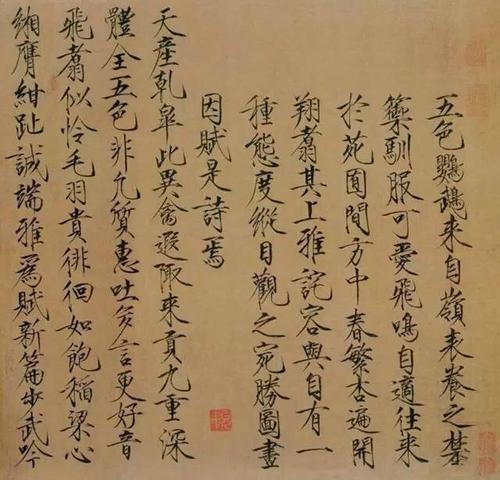 五色鸚鵡來自嶺表養之禁
籞馴服可愛飛鳴自適往來
於苑囿間方中春繁杏遍開
翔翥其上雅詫容與自有一
種態度縱目觀之宛勝圖畫
因賦是詩焉
天產乾皐此異禽遐陬來貢九重深
體全五色非凡質惠吐多言更好音
飛翥似憐毛羽貴徘徊如飽稻粱心
緗膺紺趾誠端雅爲賦新篇步武吟